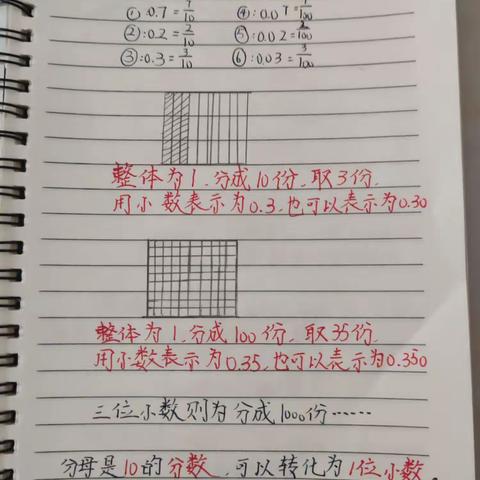 ①:0.7=7/10 ④:0.07=7/100
②:0.2=2/10 ⑤:0.02=2/100
③:0.3=3/10 ⑥:0.03=3/100
整体为1,分成10份,取3份,
用小数表示为0.3,也可以表示为0.30
整体为1,分成100份,取35份,
用小数表示为0.35,也可以表示为0.350
三位小数则为分成1000份……
分母是10的分数,可以转化为1位小数。